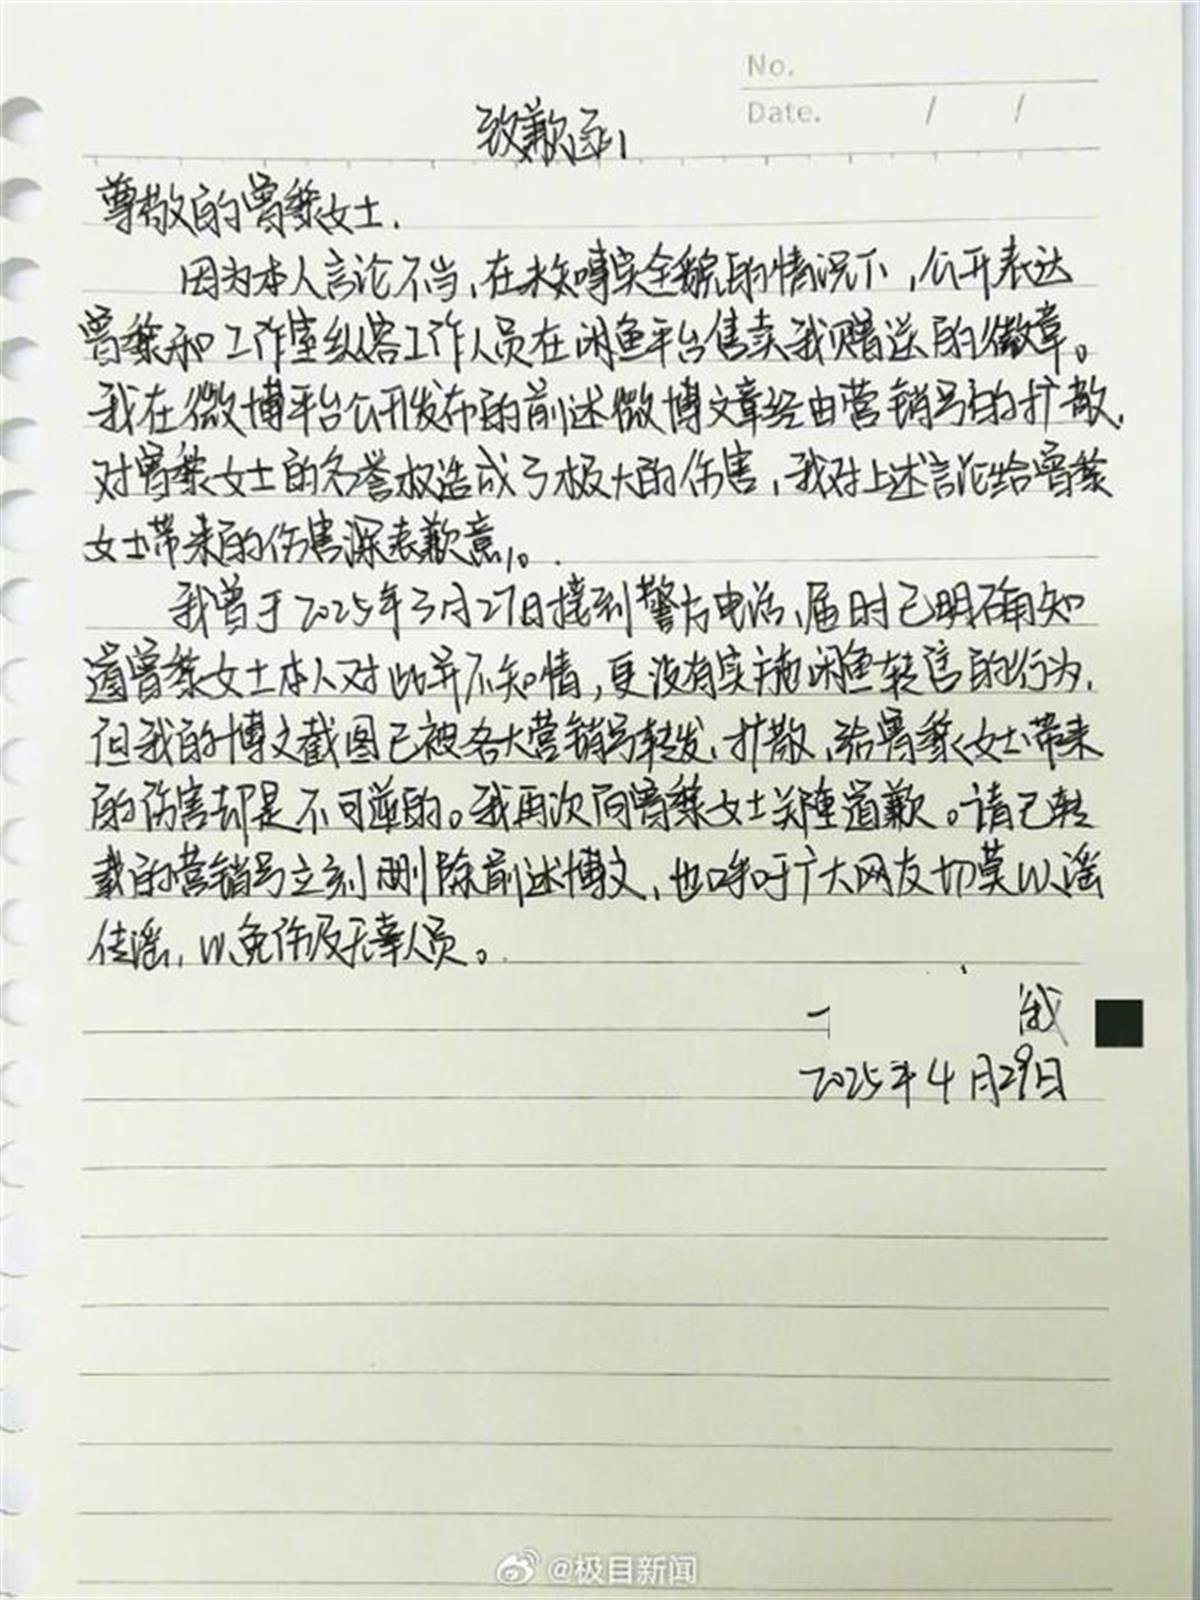 No.
Date. / /
致歉函
尊敬的曾黎女士.
因为本人言论不当,在未知事实全貌的情况下,公开表达
曾黎和工作室纵容工作人员在闲鱼平台售卖我赠送的徽章。
我在微博平台公开发布的前述微博文章经由营销号的扩散,
对曾黎女士的名誉权造成了极大的伤害,我对上述言论给曾黎
女士带来的伤害深表歉意。
我曾于2025年3月27日接到警方电话、届时已明确知
道曾黎女士本人对此并不知情,更没有实施闲鱼转售的行为,
但我的博文截图已被各大营销号转发、扩散,给曾黎女士带来
的伤害却是不可逆的。我再次向曾黎女士郑重道歉。请已转
载的营销号立刻删除前述博文,也呼吁广大网友切莫以谣
传谣,以免伤及无辜人员。
2025年4月29日
@极目新闻